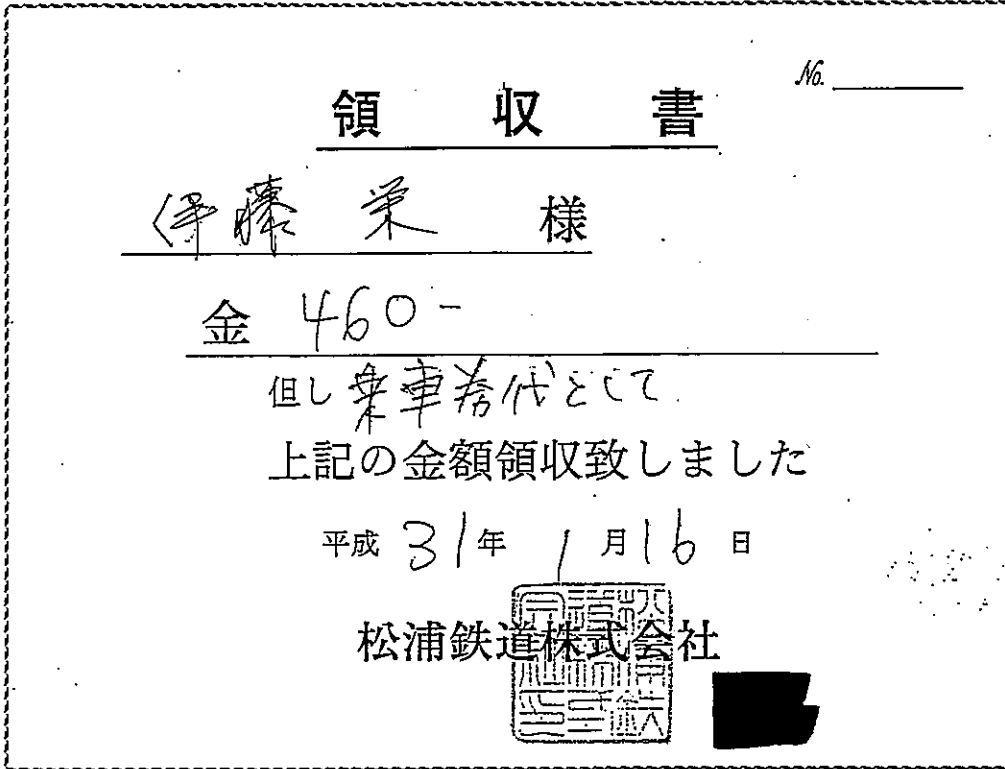 No.
領収書
伊藤 栄 様
金 460-
但し 乗車券代として
上記の金額領収致しました
平成 31年 1月16日
松浦鉄道株式会社